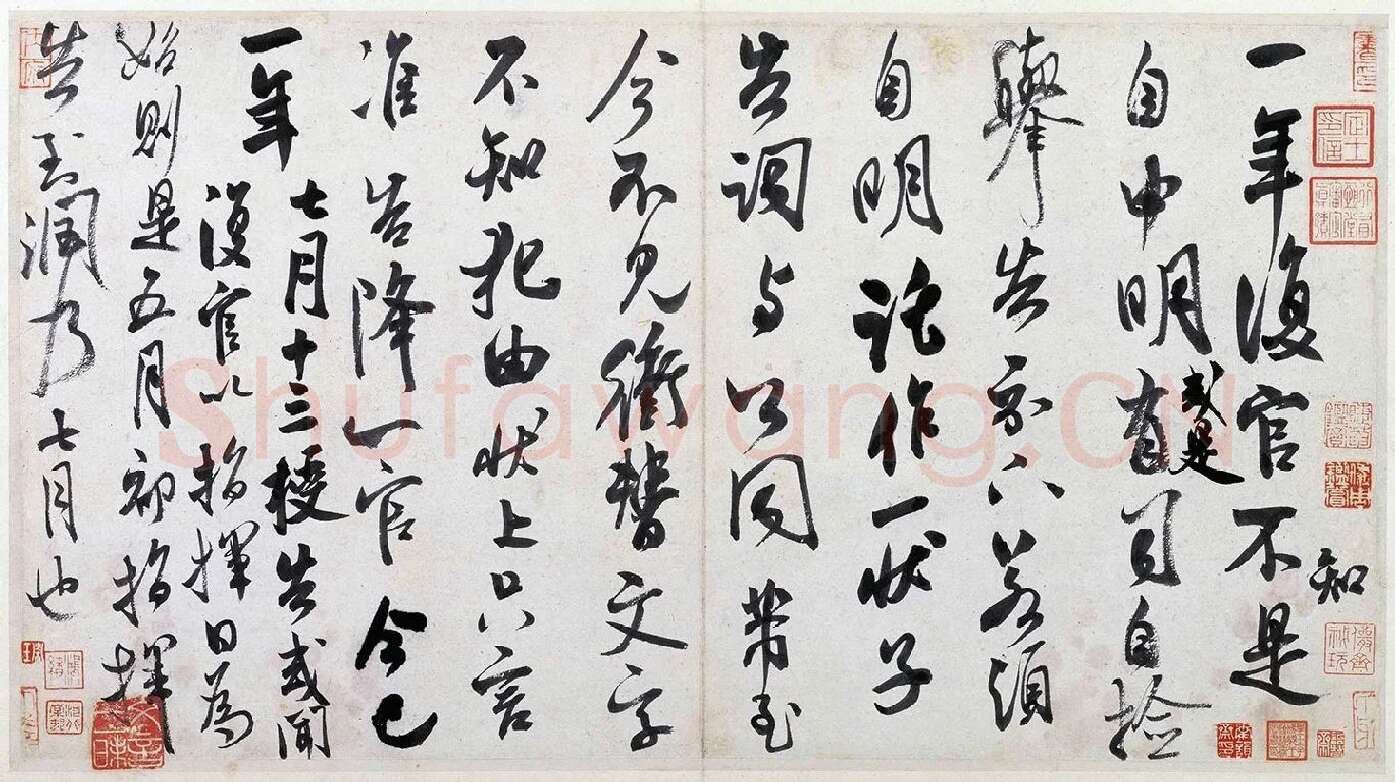 一年復官不知是
自申明或是有司自檢
舉告示下若須
自明託作一狀子
告詞与公同芾至
今不見衝替文字
不知犯由狀上只言
准告降一官今已
一年七月十三授告或聞
復官以指揮日為
始則是五月部指揮
告至潤乃七月也
Shufawang.CN